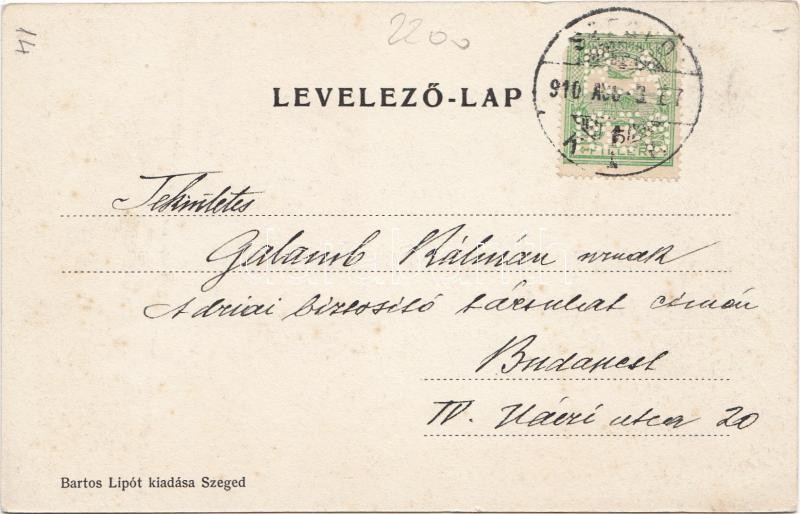 14
2200
LEVELEZŐ-LAP
910 AUG
FILLER
Tekintetes
Galamb Kálmán urnak
Adriai biztositó társulat cimén
Budapest
IV. Váczi utca 20
Bartos Lipót kiadása Szeged